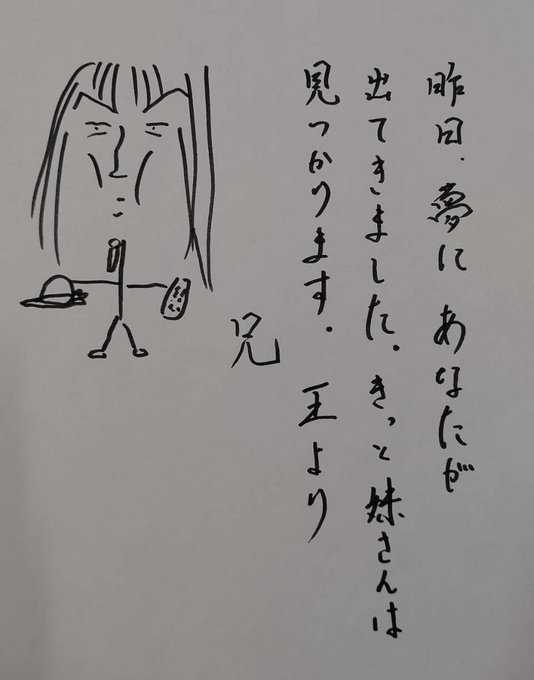 昨日、夢に あなたが
出てきました。きっと妹さんは
見つかります。 王より
兄